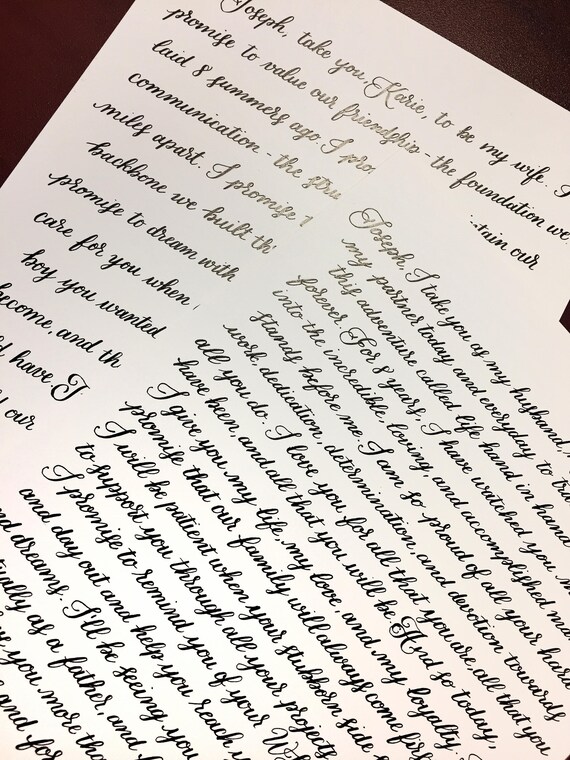 Joseph, take you, Karie, to be my wife. I
promise to value our friendship - the foundation we
laid 8 summers ago. I pro
communication - the stru
tain our
miles apart. I promise
backbone we built th
promise to dream with
care for you when
boy you wanted
become, and th
have. I
our
Joseph, I take you as my husband,
my partner today and everyday to
this adventure called life hand in hand
forever. For 8 years, I have watched you
into the incredible, loving, and accomplished
stands before me. I am so proud of all your hard
work, dedication, determination, and devotion towards
all you do. I love you for all that you are, all that you
have been, and all that you will be. And so today,
I give you my life, my love, and my loyalty.
promise that our family will always come
I will be patient when your stubborn side
to support you through all your projects
I promise to remind you of your
and day out and help you reach
dreams. I'll be seeing you
as a father, and
you more
and for